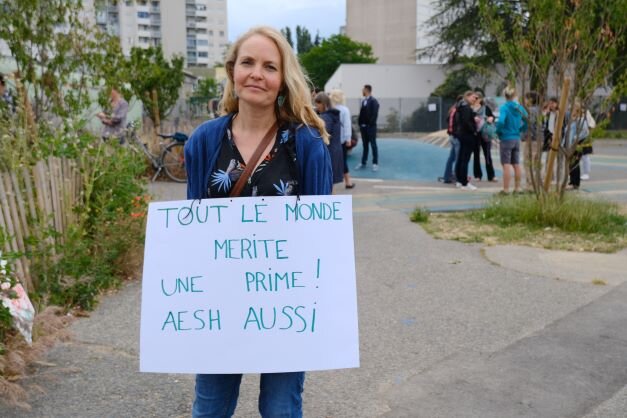 TOUT LE MONDE
MERITE
UNE PRIME !
AESH AUSSI